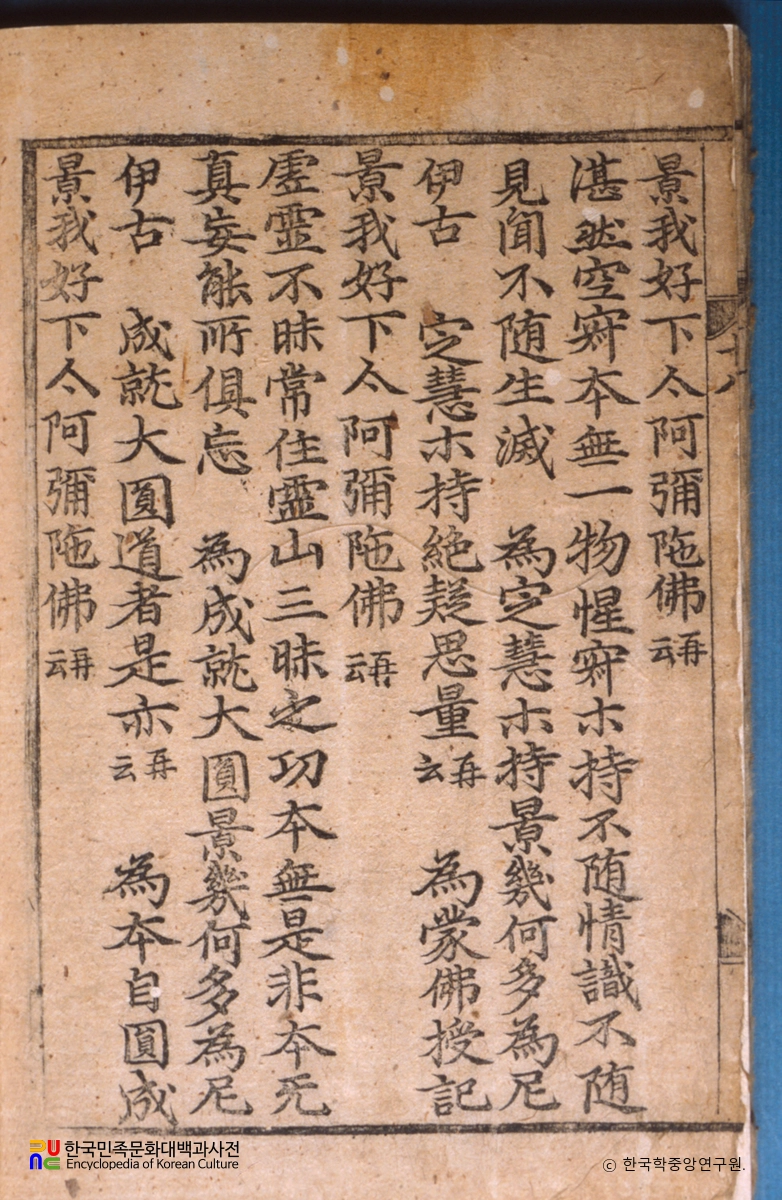 十八
景我好下亽阿彌陁佛 再云
湛然空寂本無一物惺寂ホ持不随情識不随
見聞不随生滅 為定慧ホ持景幾何多為尼
伊古 定慧ホ持絶疑思量 再云 為蒙佛授記
景我好下亽阿彌陁佛 再云
虗靈不昧常住靈山三昧之功本無是非本旡
真妄能所俱忘 為成就大圓景幾何多為尼
伊古 成就大圓道者是亦 再云 為本自圓成
景我好下亽阿彌陁佛 再云
한국민족문화대백과사전
Encyclopedia of Korean Culture
ⓒ 한국학중앙연구원.